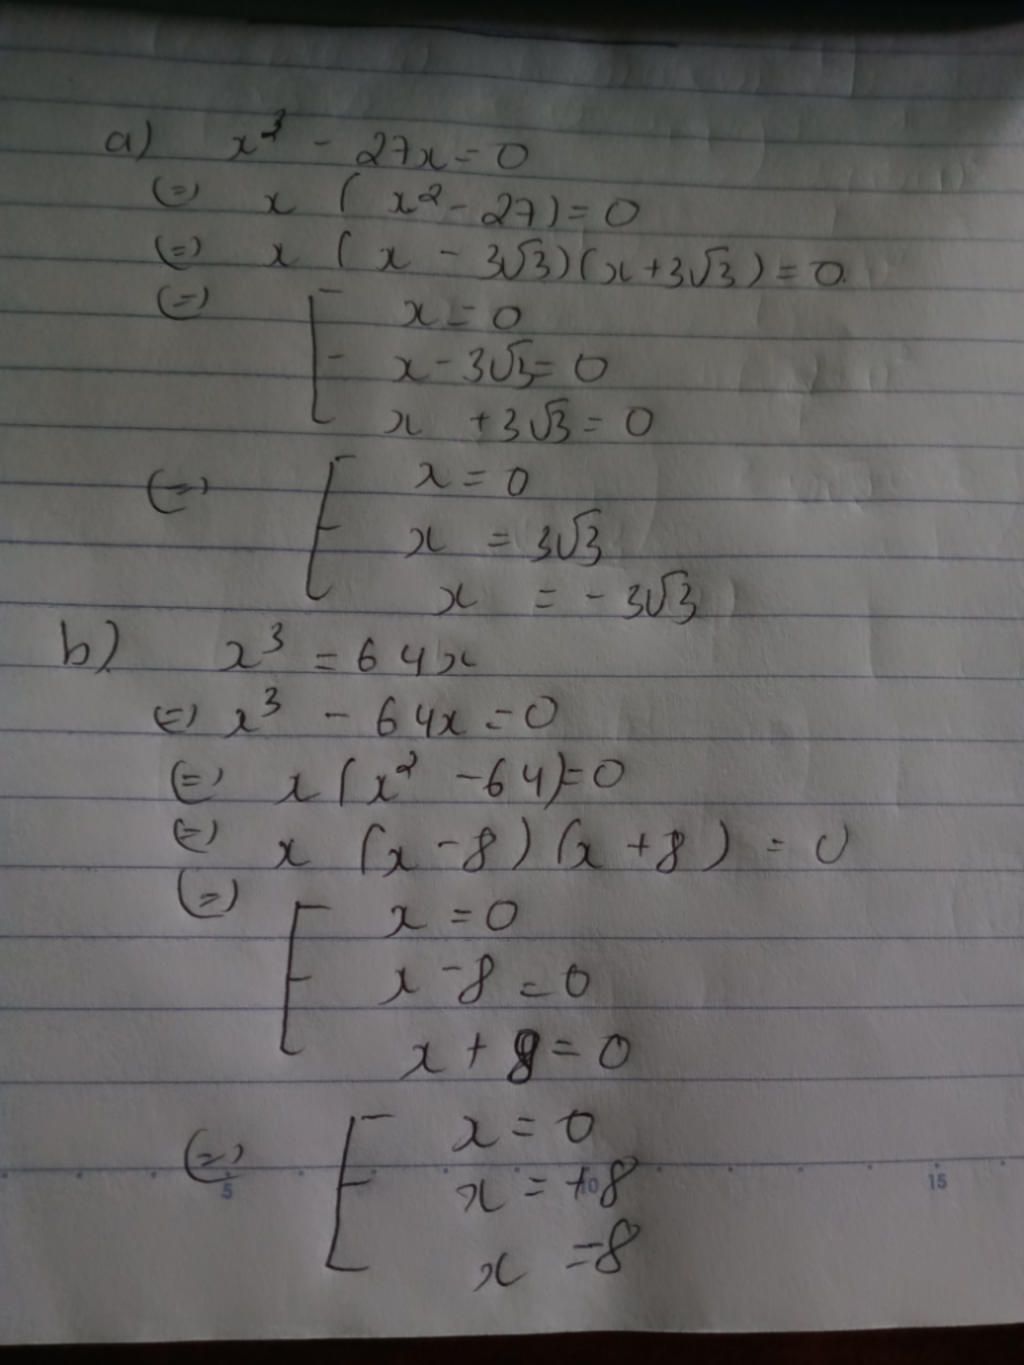 a) x³ - 27x = 0
(=) x ( x² - 27) = 0
(=) x ( x - 3√3)(x + 3√3) = 0
(=) [ x = 0
x - 3√3 = 0
x + 3√3 = 0
(=) [ x = 0
x = 3√3
x = - 3√3
b) x³ = 64x
(=) x³ - 64x = 0
(=) x (x² - 64) = 0
(=) x (x - 8) (x + 8) = 0
(=) [ x = 0
x - 8 = 0
x + 8 = 0
(=) [ x = 0
x = +8
x = -8
5 10 15